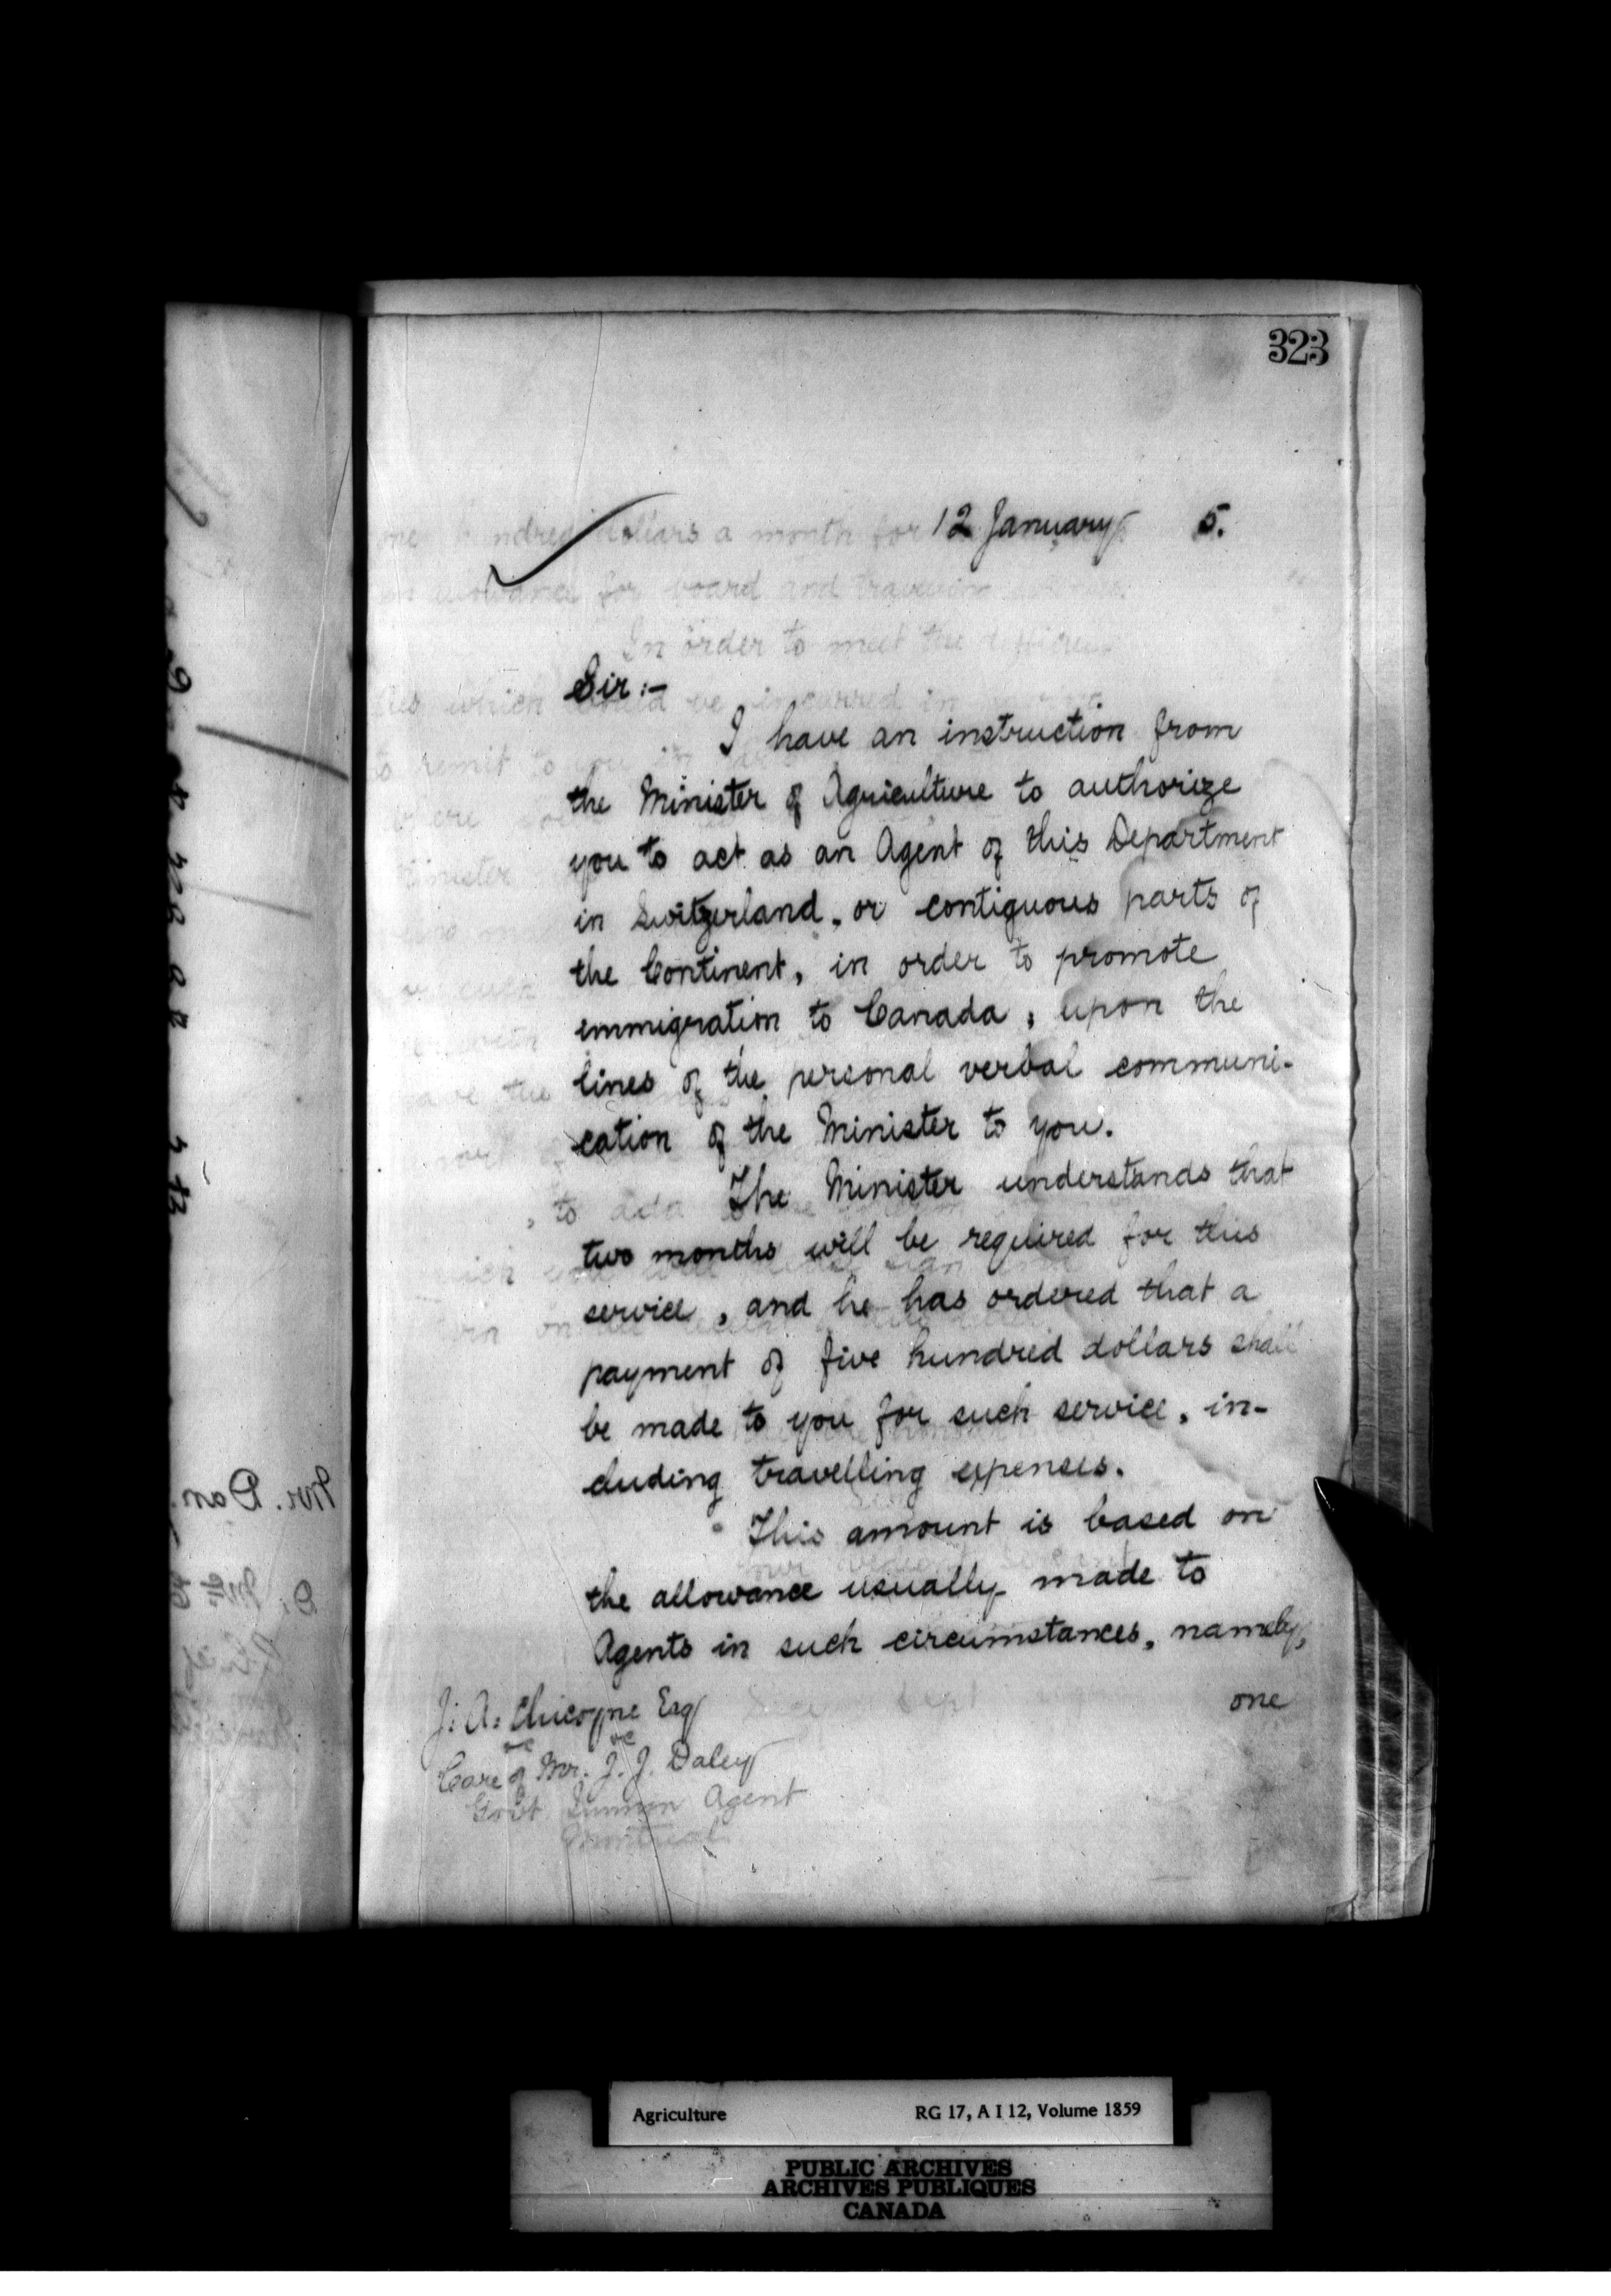 323
12 January 5.
Sir:-
I have an instruction from
the Minister of Agriculture to authorize
you to act as an Agent of this Department
in Switzerland, or contiguous parts of
the Continent, in order to promote
immigration to Canada, upon the
lines of the personal verbal communi-
cation of the Minister to you.
The Minister understands that
two months will be required for this
service, and he has ordered that a
payment of five hundred dollars shall
be made to you for such service, in-
cluding travelling expenses.
This amount is based on
the allowance usually made to
Agents in such circumstances, namely,
one
J. A. Chicoyne Esq
Care of Mr. J. J. Daley
Govt Immn Agent
Montreal
Agriculture RG 17, A I 12, Volume 1859
PUBLIC ARCHIVES
ARCHIVES PUBLIQUES
CANADA